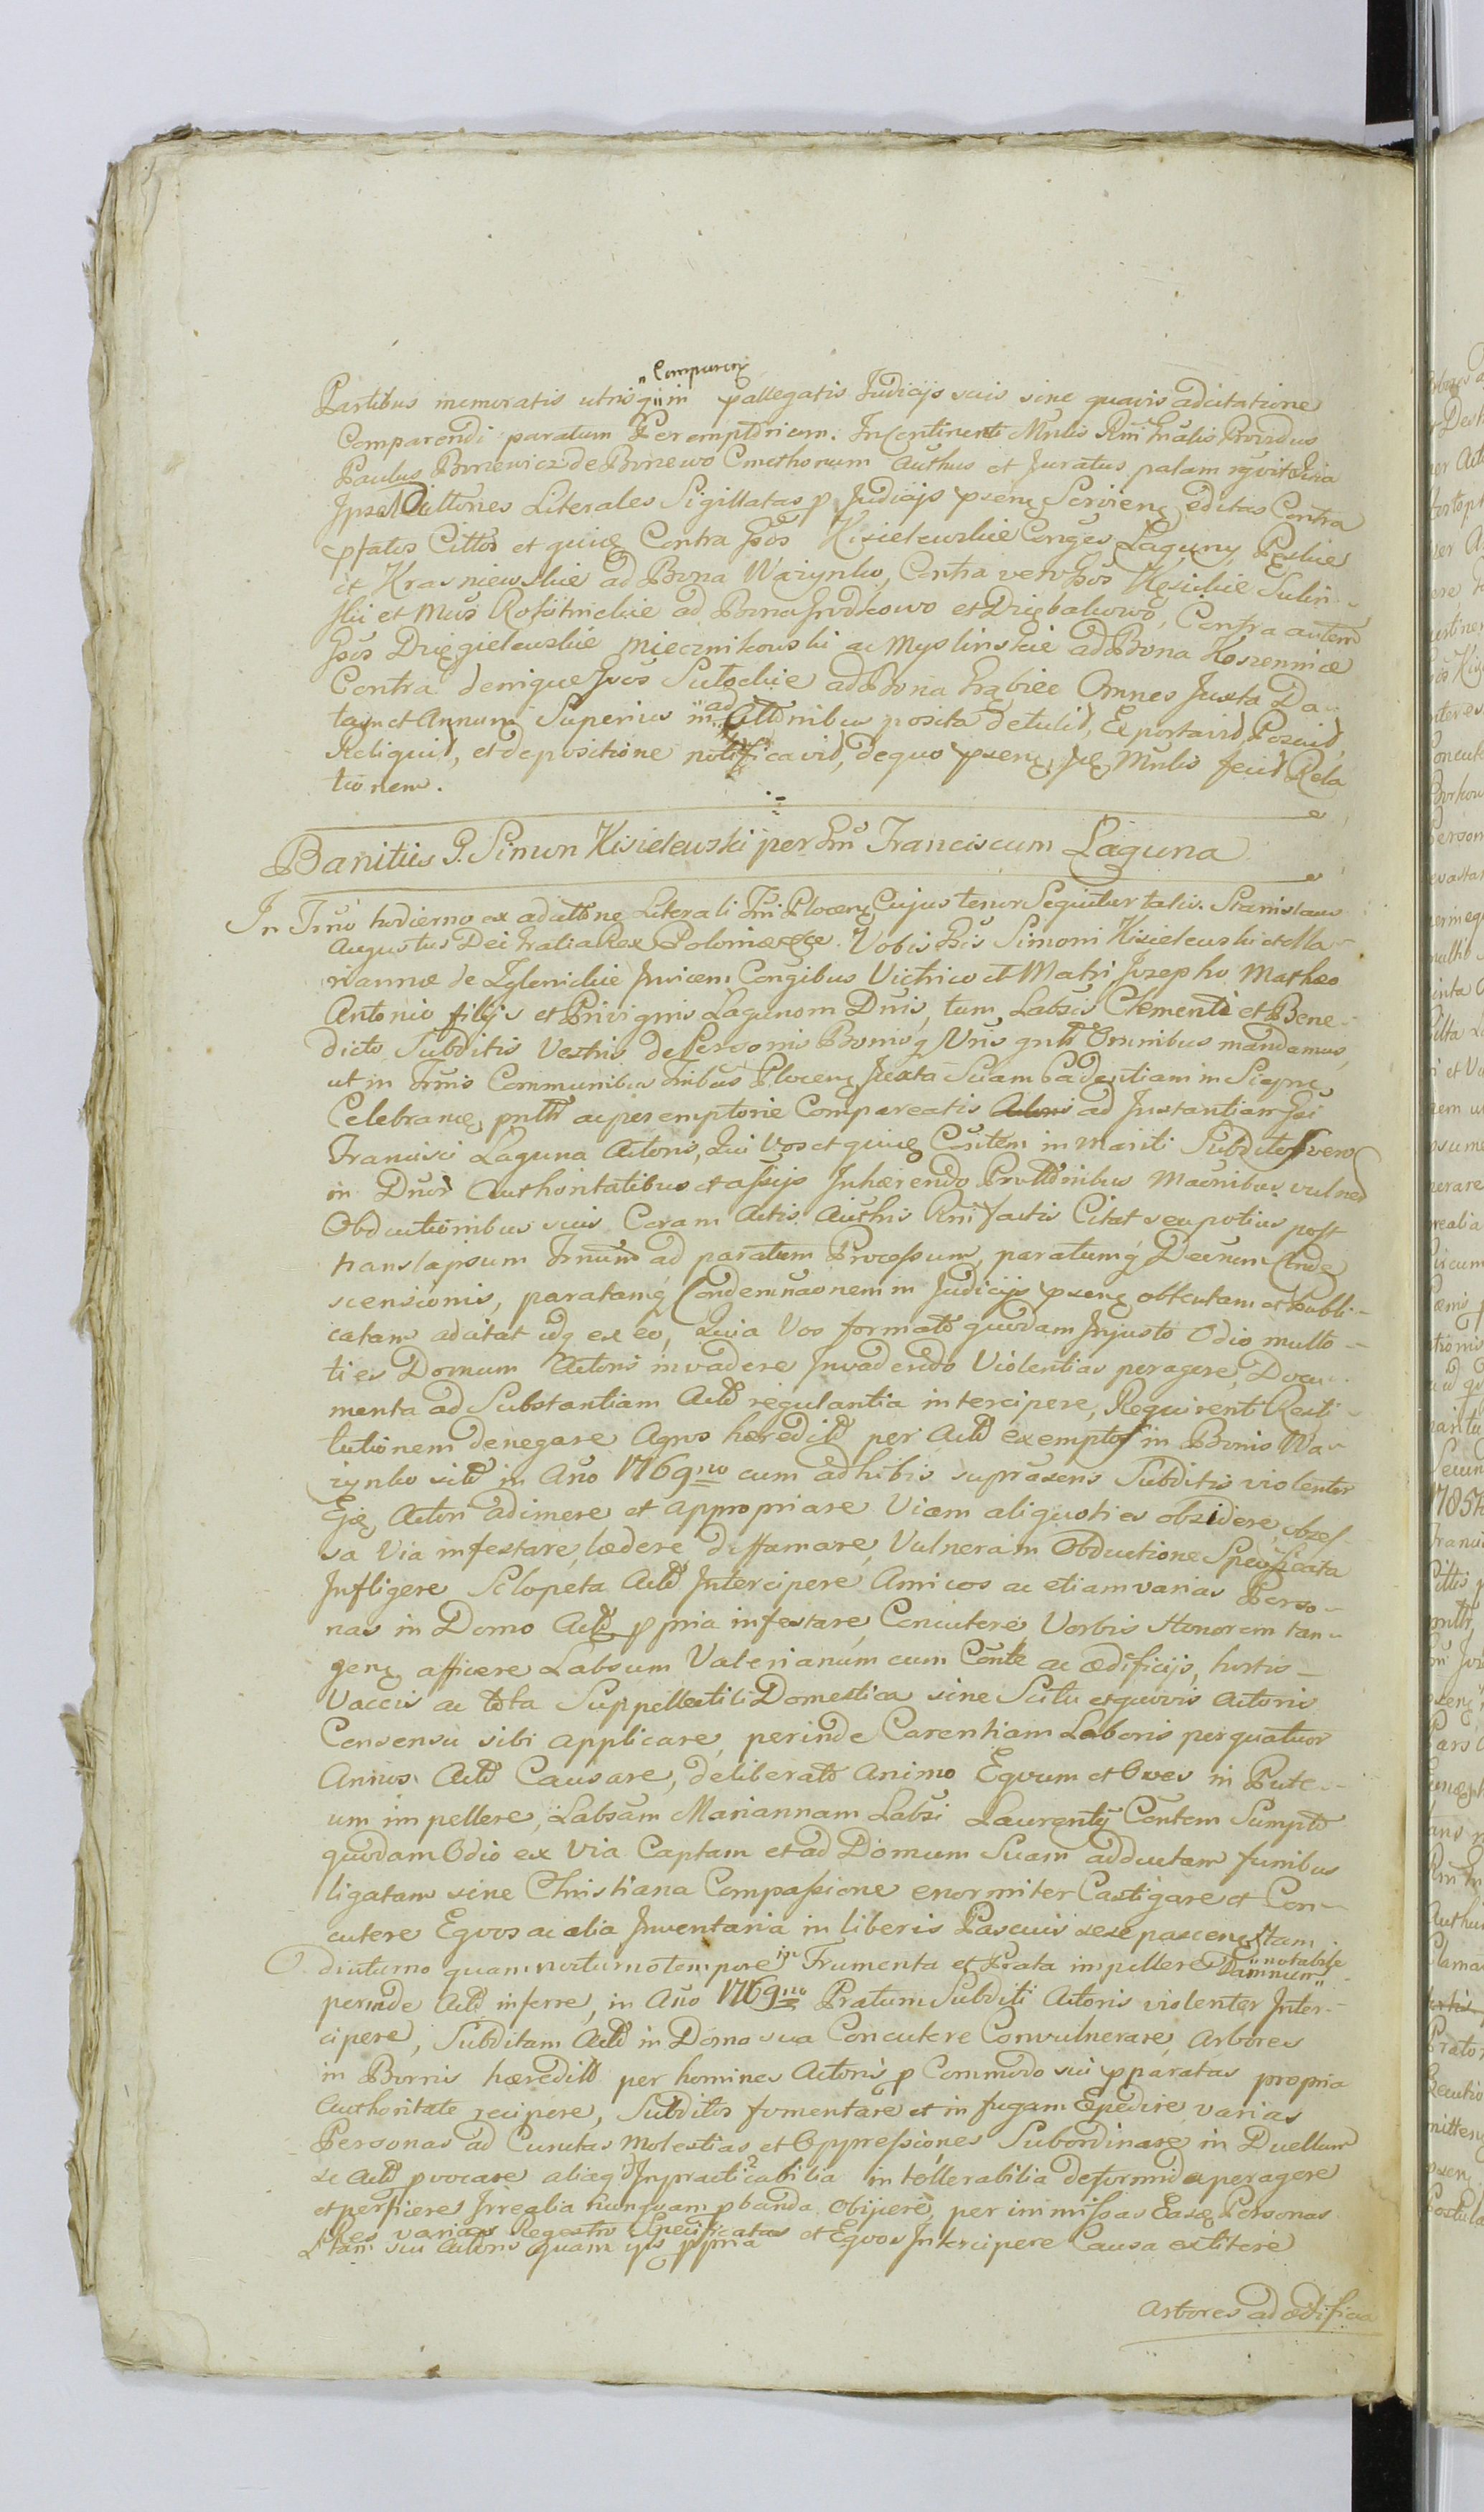 Comparen
Partibus memoratis utrisq in pallegatis Judicijs suis sine quavis adcitatione
Comparendi paratum Peremptorium. Incontinenti Mnlis Rni Gnalis Providus
Paulus Bonewicz de Bonewo Cmethonum Authus et Juratus palam
Ipse Literales Sigillatas p Judicijs psen Servien editas Contra
pfatos Cittos et Contra Gsos Kisielewskie Conges Laguny, Pęskie
et Krasniewskie ad Bona Ważynko, Contra vero Gsos Kęsickie Sulin
skii et Mcos Rosciinickie ad Bona Grodkowo et Dziębakowo, Contra autem
Gsos Dzięgielewskie Miecznikowski ac Myslinskie ad Bona Koszennice
Contra denique Gsos Sutockie ad Bona Grąbiec Omnes Juxta Da
tam et Annum Superius in ad Cittonibus posita detulit, Exportavit Posuit,
Reliquit, et de positione notificavit, de quo psen, Mnlis fecit Rela
tionem.
Banities G. Simon Kisielewski per Gm Franciscum Laguna
In Trno hodierno ex adcittone Literali Tri Plocen Cujus tenor Sequitur talis. Stanislaus
Augustus Dei Gratia Rex Poloniæ &ce. Vobis Gsis Simoni Kisielewski et Ma
riannæ de Zglenickie Invicem Congibus Victrico et Matri, Josepho Matheo
Antonio filijs et Privignis Lagunom Dnis, tum Labsis Clementi et Bene
dicto Subditis Vestris de Personis Bonisq Vris gntr Omnibus mandamus,
ut in Trnis Communibus Tribus Plocen Juxta Suam Cadentiam in Sierpc
Celebran, pntr ac peremptorie Compareatis ad Instantiam Gsi
Francisci Laguna Actoris, Qui Vos et Contem in Mariti Subditos vero
in Dnor Authoritatibus et assijs Inhærendo Prottonibus Maonibus vulner
Obductionibus suis Coram Actis Authis Rni factis Citat seu potius post
translapsum Trnum ad paratum Processum, paratumq Decrum Conde
scensionis, paratamq Condemnaonem in Judicijs psen obtentam et Publi
catam adcitat idq ex eo, Quia Vos formato quodam Injusto Odio multo
ties Domum Actoris invadere Invadendo Violentias peragere, Docu
menta ad Substantiam Acto regulantia intercipere, Requirenti Resti
tutionem denegare Agros hæredito per Acto exemptos in Bonis Wa
żynko sito in Ano 1769no cum adhibis supraxens Subditis violenter
Actori adimere et appropriare Viam aliquoties obsidere, obses
sa Via infestare, lædere, diffamare, Vulnera in Obductione Specificata
Infligere Sclopeta Acto Intercipere Amicos ac etiam varias Perso
nas in Domo Acto ppria infestare, Concutere Verbis Honorem tan
gen afficere Labsum Valerianum cum Conte ac ædificijs, hortis
Vaccis ac tota Suppellectili Domestica sine Scitu et quovis Actoris
Consensu sibi applicare, perinde Carentiam Laboris per quatuor
Annos Acto Causare, deliberato Animo Equum et Oves in Pute
um impellere, Labsam Mariannam Labsi Laurentij Contem Sumpto
quodam Odio ex Via Captam et ad Domum Suam adductam funibus
ligatam sine Christiana Compassione enormiter Castigare et Con
cutere Equos ac alia Inventaria in liberis Pascuis sese pascen, tam
diuturno quam nocturno tempore in Frumenta et Prata impellere Damnum notabile
perinde Acto inferre, in Ano 1769no Pratum Subditi Actoris violenter Inter
cipere, Subditam Acto in Domo sua Concutere Convulnerare, Arbores
in Bonis hæredito per homines Actoris p Commodo sui pparatas propria
Authoritate recipere, Subditos fomentare et in fugam Epedire, varias
Personas ad Cunctas Molestias et Oppressiones Subordinare, in Duellum
se Acto pvocare aliaq Inpracticabilia intollerabilia deformida peragere
et perficere Irrealia nunquam pbanda Obijcere, per immissas Easq Personas
Res varias Regestro Specificatas
tam sui Actoris quam ips ppria et Equos Intercipere Causa extitere
Arbores ad ædificia